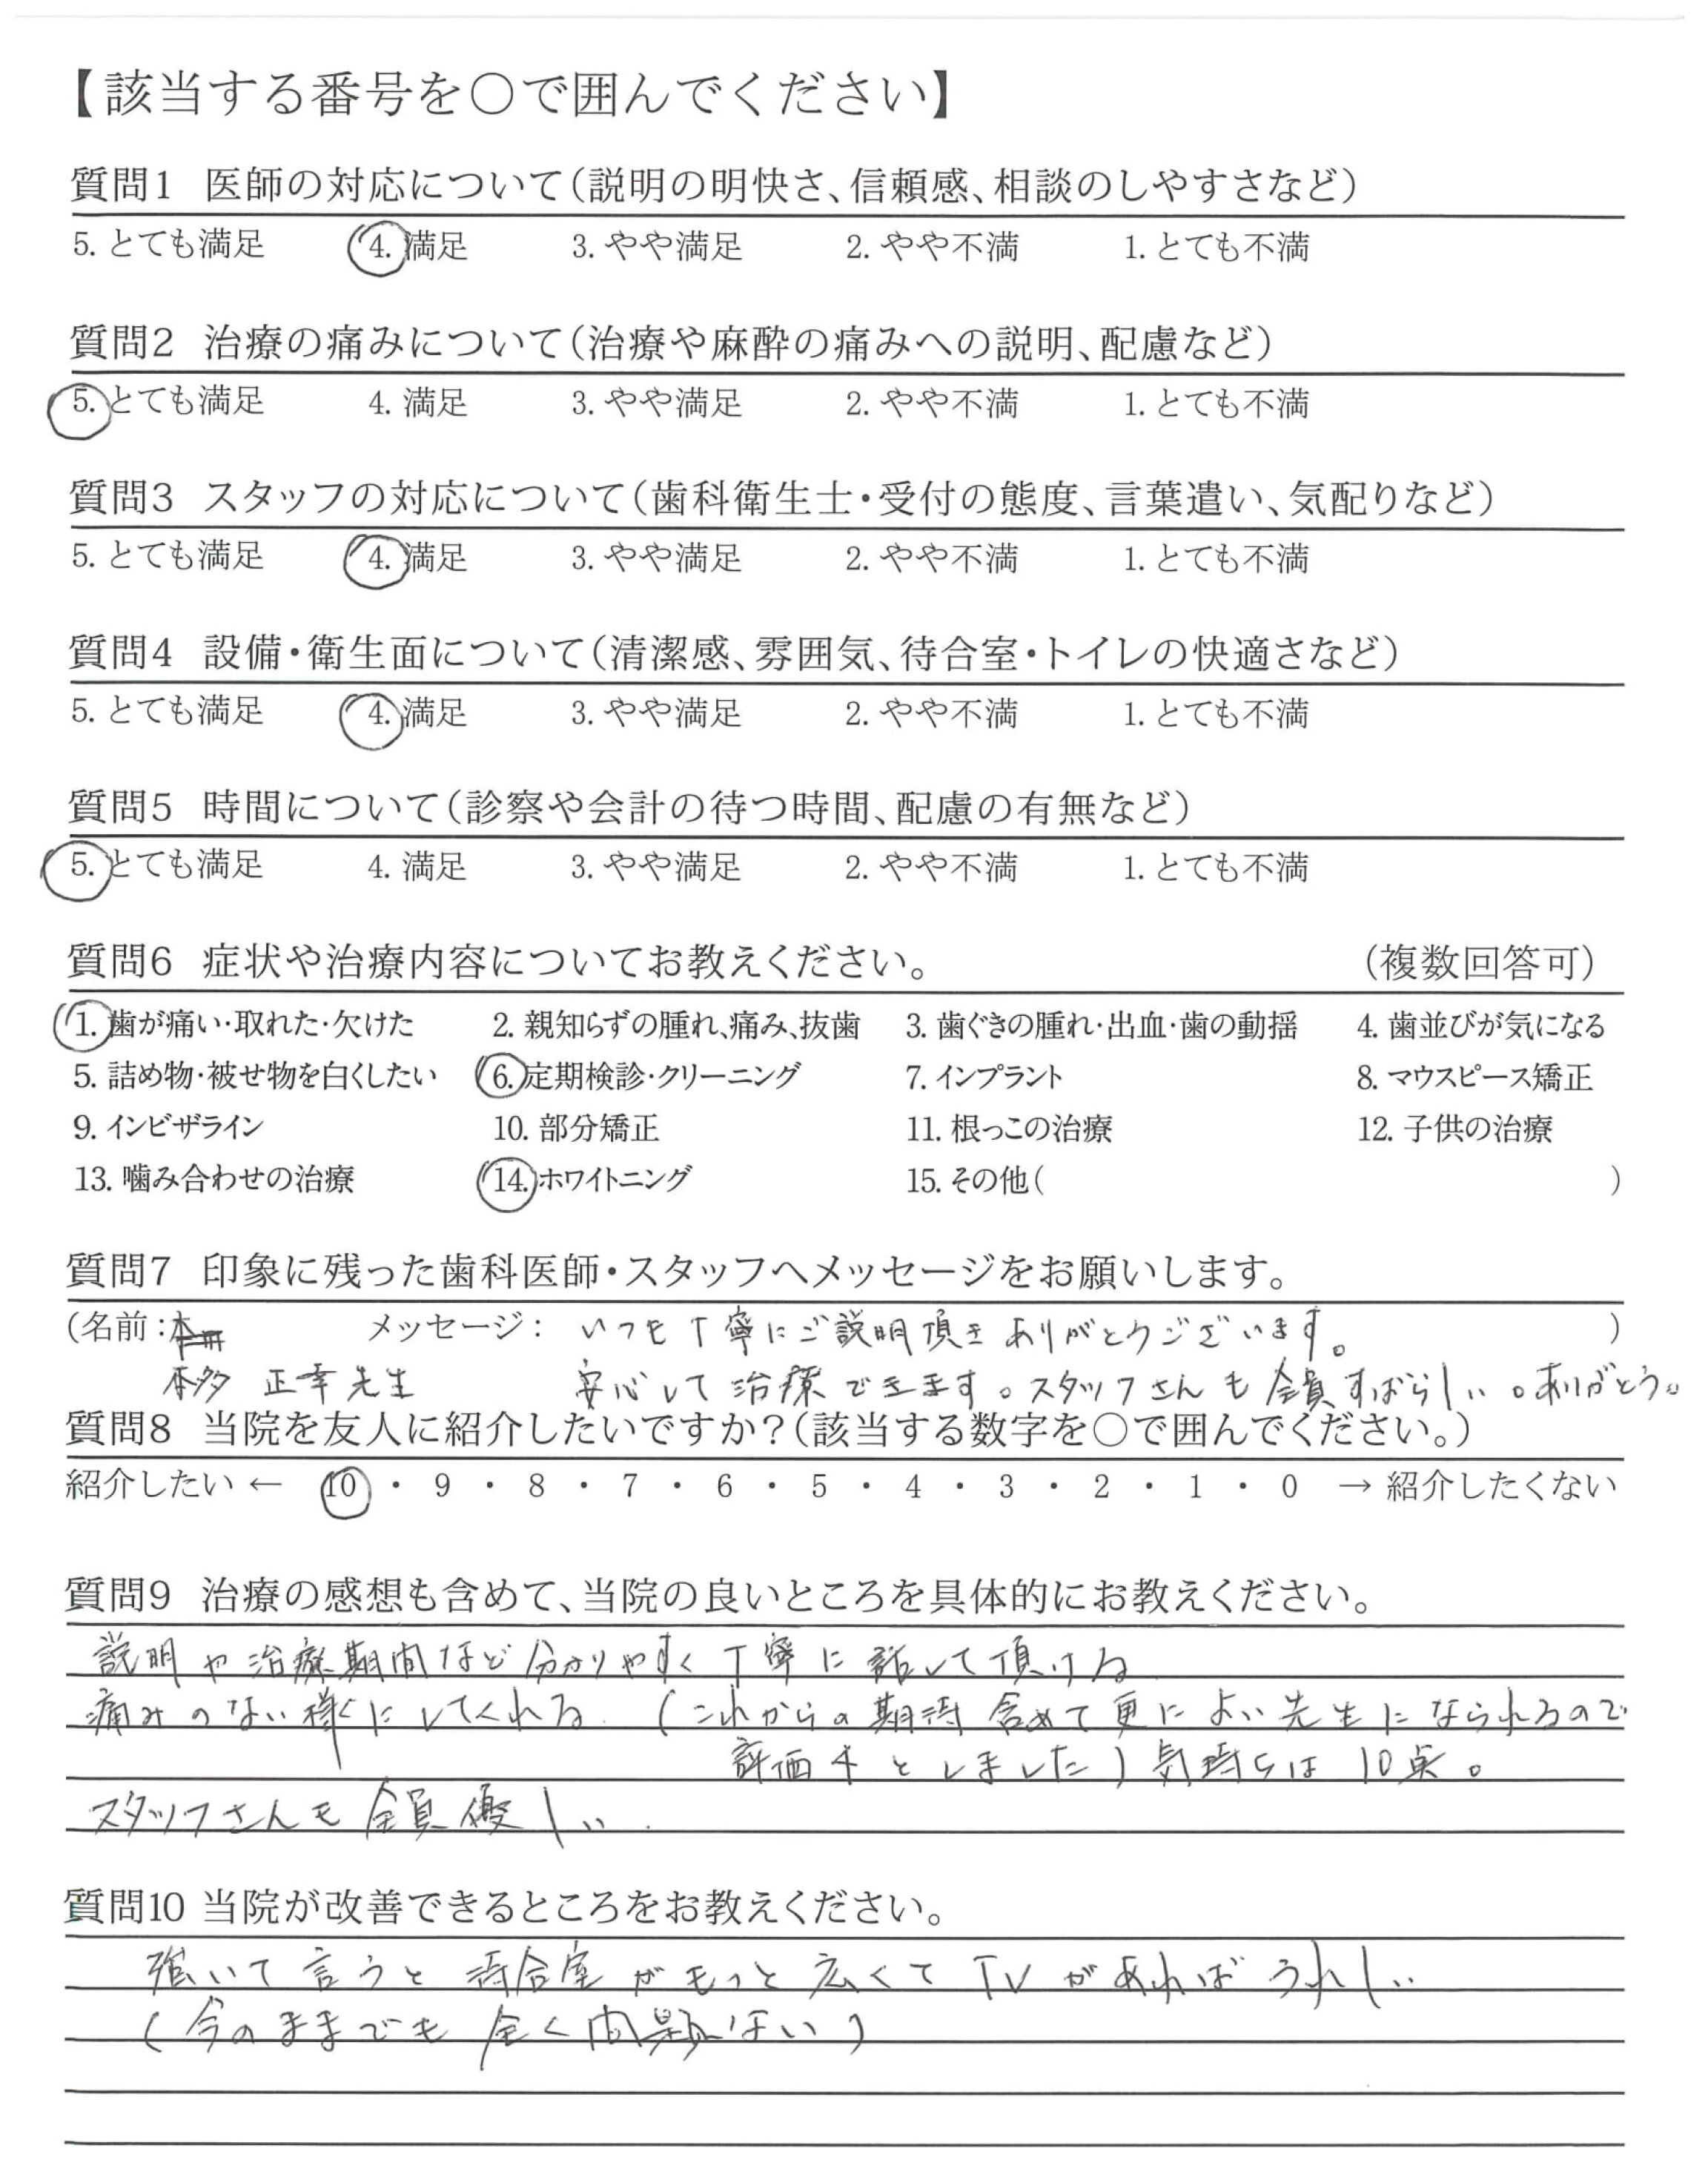 【該当する番号を○で囲んでください】
質問1 医師の対応について（説明の明快さ、信頼感、相談のしやすさなど）
5. とても満足 4. 満足 3. やや満足 2. やや不満 1. とても不満
質問2 治療の痛みについて（治療や麻酔の痛みへの説明、配慮など）
5. とても満足 4. 満足 3. やや満足 2. やや不満 1. とても不満
質問3 スタッフの対応について（歯科衛生士・受付の態度、言葉遣い、気配りなど）
5. とても満足 4. 満足 3. やや満足 2. やや不満 1. とても不満
質問4 設備・衛生面について（清潔感、雰囲気、待合室・トイレの快適さなど）
5. とても満足 4. 満足 3. やや満足 2. やや不満 1. とても不満
質問5 時間について（診察や会計の待つ時間、配慮の有無など）
5. とても満足 4. 満足 3. やや満足 2. やや不満 1. とても不満
質問6 症状や治療内容についてお教えください。 （複数回答可）
1. 歯が痛い・取れた・欠けた 2. 親知らずの腫れ、痛み、抜歯 3. 歯ぐきの腫れ・出血・歯の動揺 4. 歯並びが気になる
5. 詰め物・被せ物を白くしたい 6. 定期検診・クリーニング 7. インプラント 8. マウスピース矯正
9. インビザライン 10. 部分矯正 11. 根っこの治療 12. 子供の治療
13. 噛み合わせの治療 14. ホワイトニング 15. その他（ ）
質問7 印象に残った歯科医師・スタッフへメッセージをお願いします。
（名前： メッセージ： いつも丁寧にご説明頂きありがとうございます。 ）
本多 正幸先生 安心して治療できます。スタッフさんも全員すばらしい。ありがとう。
質問8 当院を友人に紹介したいですか？（該当する数字を○で囲んでください。）
紹介したい ← 10 ・ 9 ・ 8 ・ 7 ・ 6 ・ 5 ・ 4 ・ 3 ・ 2 ・ 1 ・ 0 → 紹介したくない
質問9 治療の感想も含めて、当院の良いところを具体的にお教えください。
説明や治療期間など分かりやすく丁寧に話して頂ける
痛みのない様にしてくれる （これからの期待含めて更によい先生になられるので
評価4としました）気持ちは10点。
スタッフさんも全員優しい.
質問10 当院が改善できるところをお教えください。
強いて言うと待合室がもっと広くてTVがあればうれしい
（今のままでも全く問題ない）